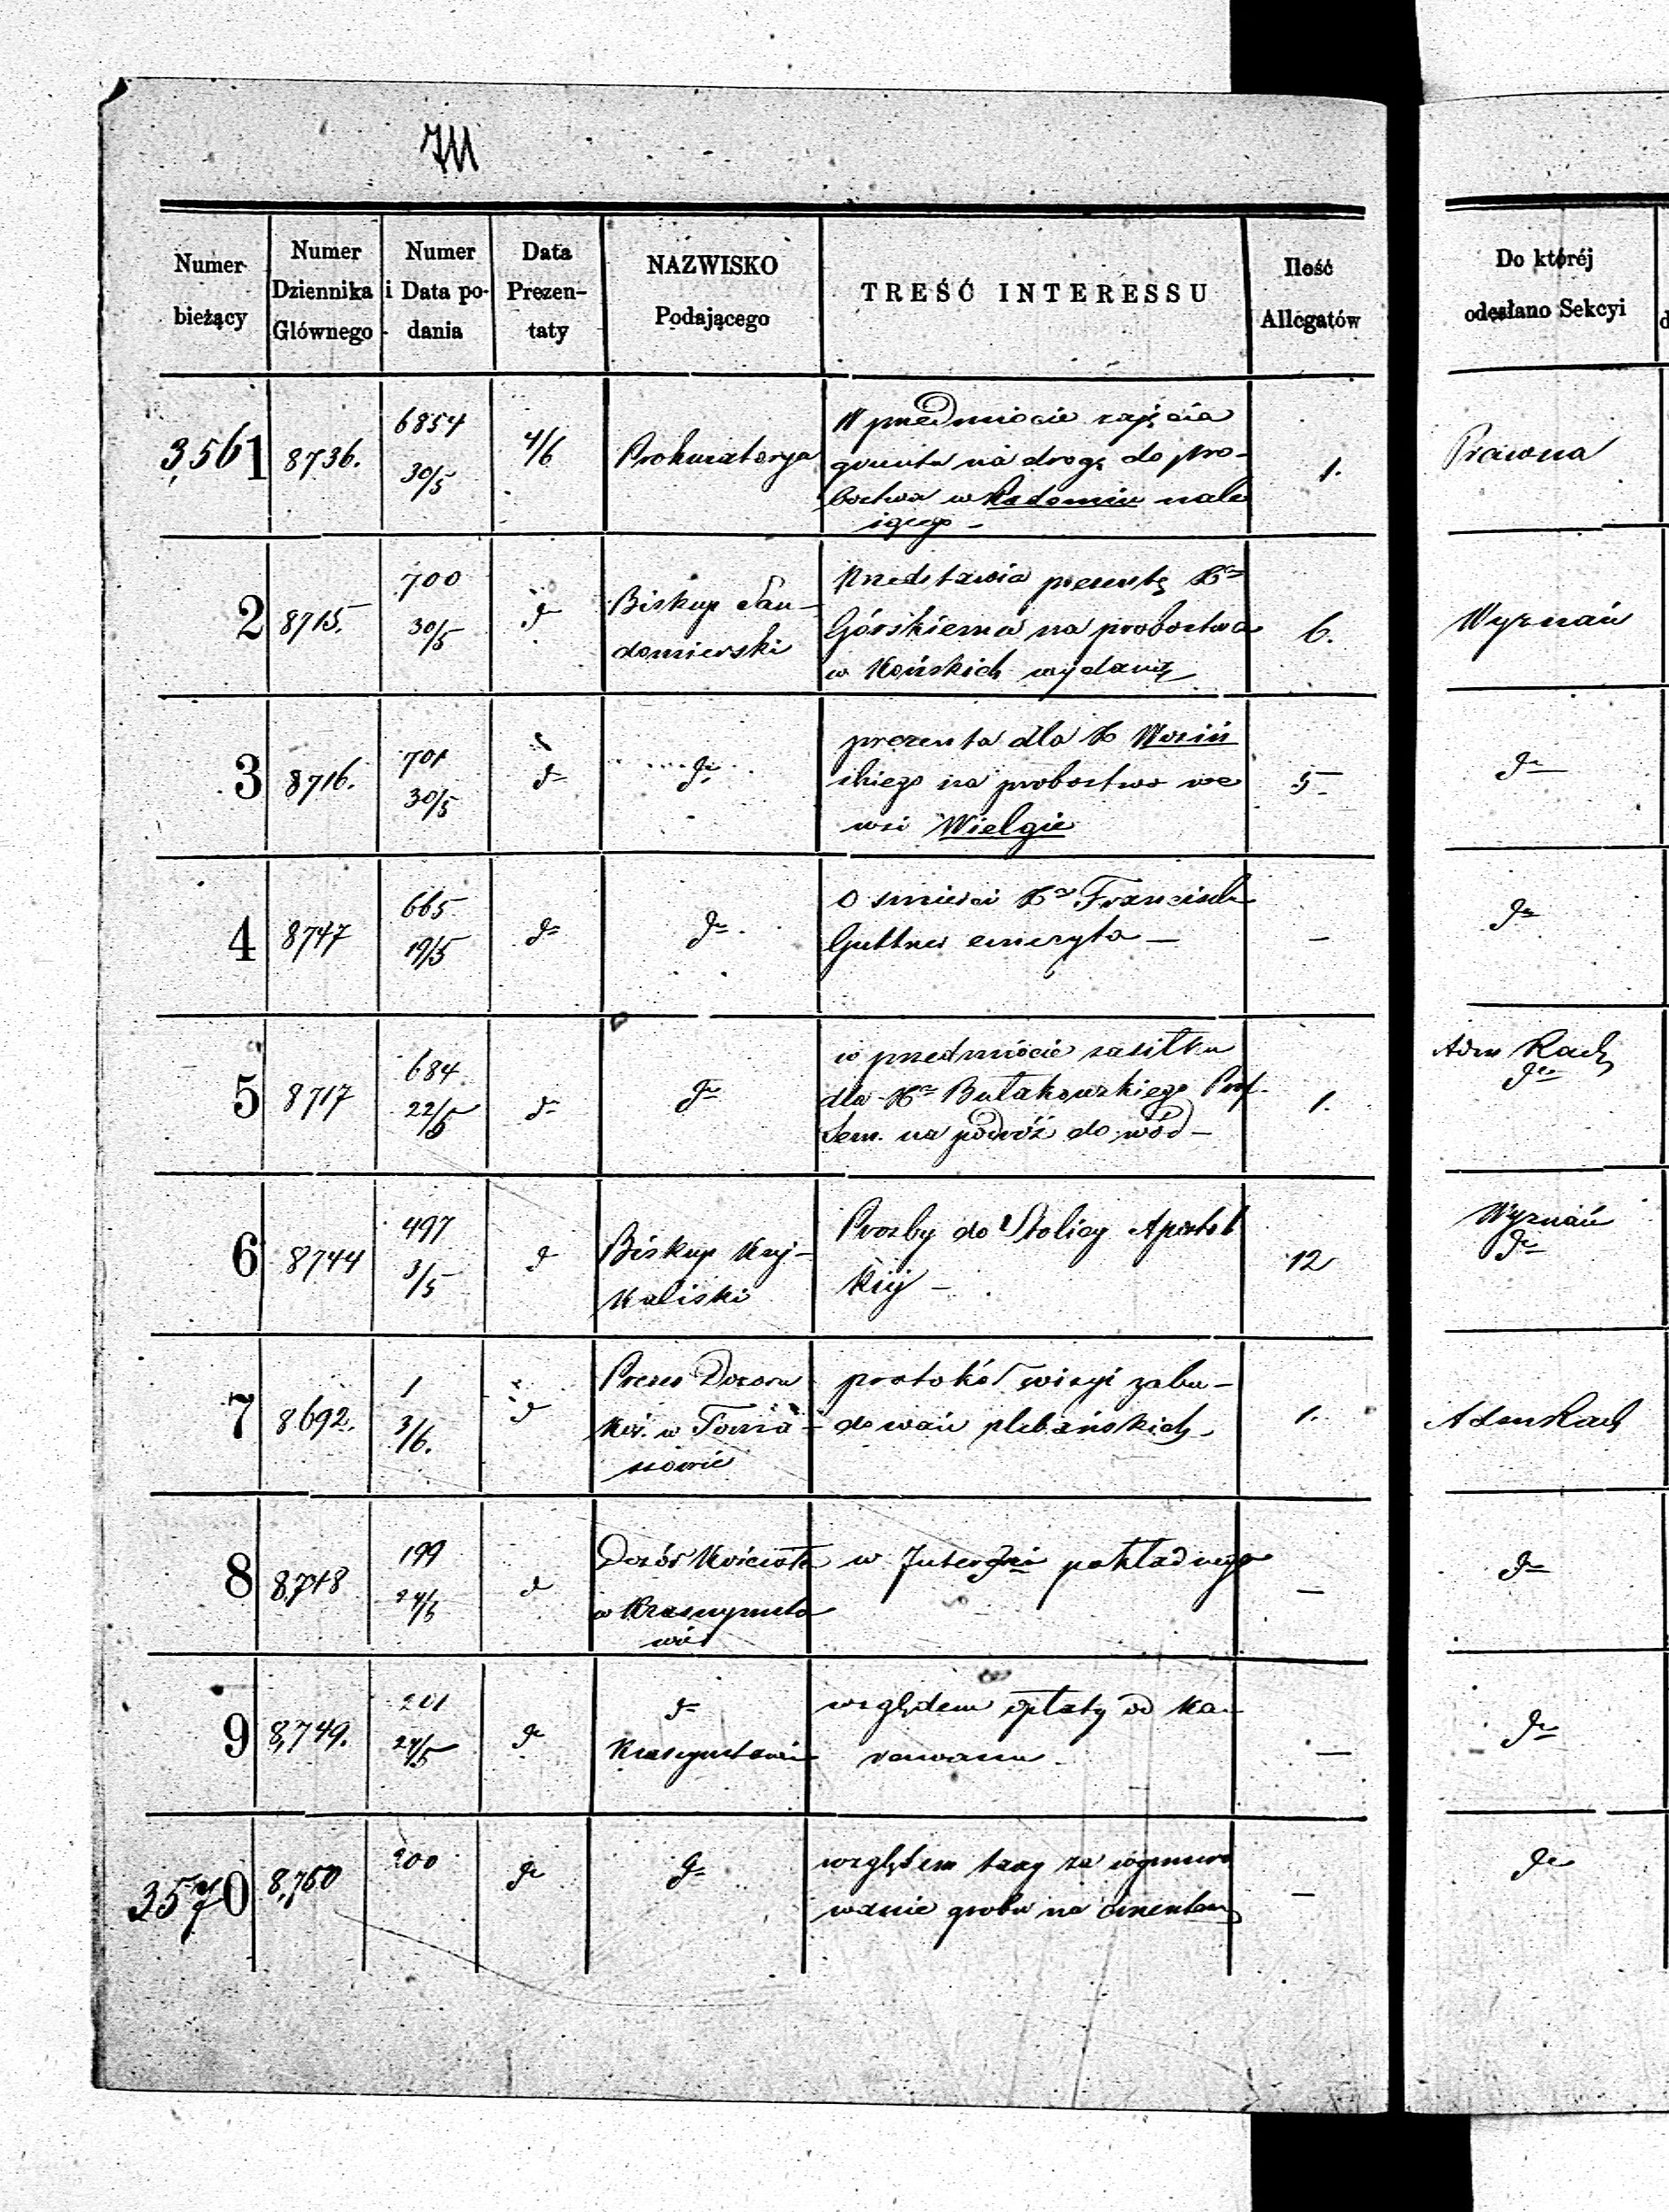 Numer bieżący
Numer Dziennika Głównego
Numer i Data podania
Data Prezentaty
NAZWISKO Podającego
TREŚĆ INTERESSU
Ilość Allegatów
Do któréj odesłano Sekcyi
3,561
8736.
6854
30/5
4/6
Prokuratorya
W przedmiocie zajęcia
gruntu na drogę do pro-
bostwa w Radomiu nale
żącego -
1.
Prawna
2
8715.
700
30/5
do
Biskup San-
domierski
Przedstawia prezentę Xa
Górskiemu na probostwo
w Końskich wydaną
6.
Wyznań
3
8716.
701
30/5
do
do
prezenta dla X
skiego na probostwo we
wsi Wielgie
5
do
4
8747
665
19/5
do
do
o śmierci Xa Franciszka
emeryta —
—
do
5
8717
684
22/5
do
do
w przedmiocie zasiłku
dla Xa Bułakowskiego Prof.
Sem. na podróż do wód —
1.
Adm Rach
do
6
8744
497
3/5
do
Biskup Kuj-
Kaliski
Prośby do Stolicy Apostol
kiej —
12
Wyznań
do
7
8692.
1
3/6.
do
Prezes Dozoru
Koś. w Toma-
szowie
protokół wizyi zabu-
dowań plebańskich
1.
Adm Rach
8
8,748
199
24/5
do
Dozór Kościoła
w Krasnymsta
wie
w Interesie pokładnego
—
do
9
8,749.
201
24/5
do
do
Krasnymstawie
względem opłaty od ka-
rawanu
—
do
3570
8,750
200
do
do
względem taxy za wymuro
wanie grobu na cmentarzu
—
do